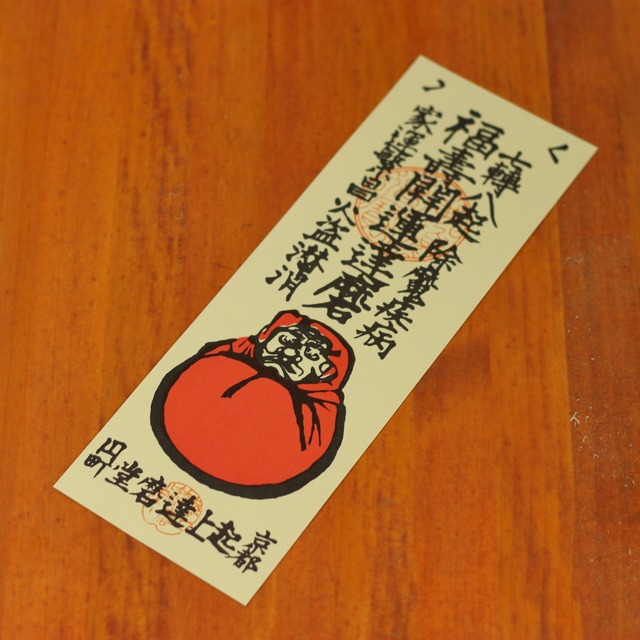 七轉八起 除魔疾病
福喜開運達磨
家運繁昌 火盗潜消
京都
起上達磨堂
円町